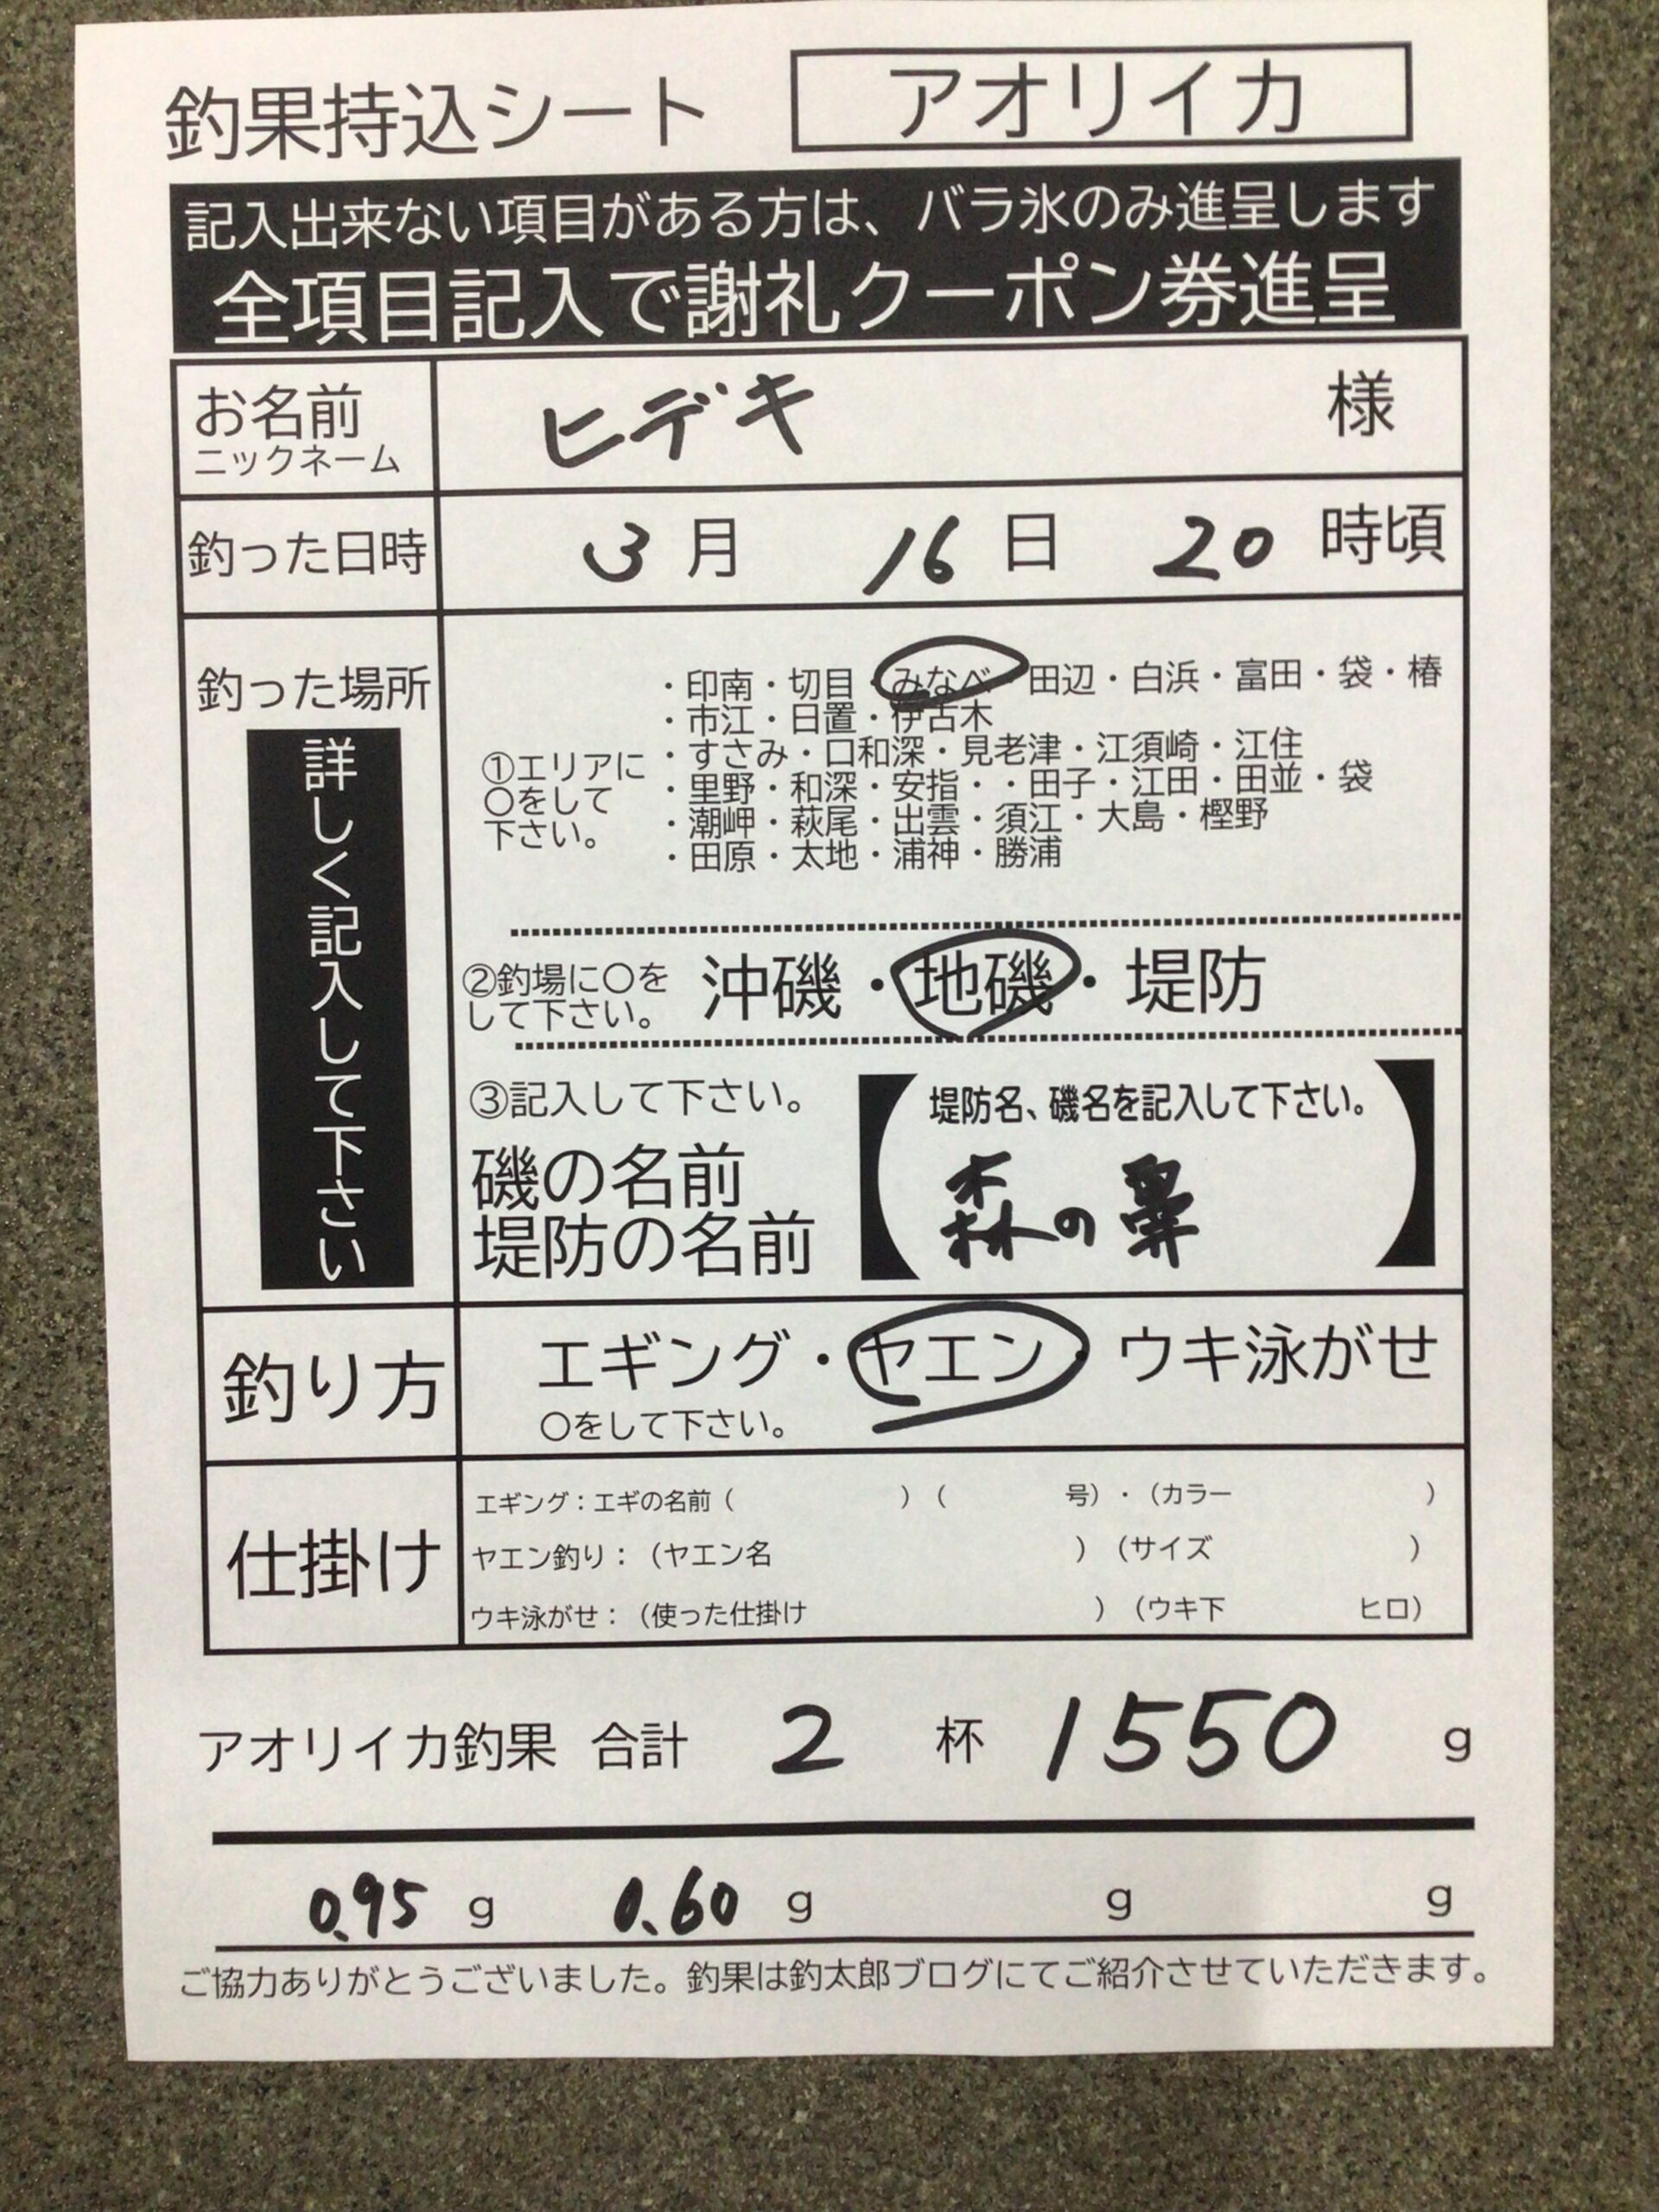 釣果持込シート アオリイカ
記入出来ない項目がある方は、バラ氷のみ進呈します
全項目記入で謝礼クーポン券進呈
お名前 ヒデキ 様
ニックネーム
釣った日時 3月 16日 20時頃
釣った場所
詳しく記入して下さい
①エリアに
〇をして
下さい。
・印南・切目・みなべ・田辺・白浜・富田・袋・椿
・市江・日置・伊古木
・すさみ・口和深・見老津・江須崎・江住
・里野・和深・安指・・田子・江田・田並・袋
・潮岬・萩尾・出雲・須江・大島・樫野
・田原・太地・浦神・勝浦
②釣場に〇を
して下さい。
沖磯・地磯・堤防
③記入して下さい。
磯の名前
堤防の名前
【堤防名、磯名を記入して下さい。
森の鼻】
釣り方 エギング・ヤエン・ウキ泳がせ
〇をして下さい。
仕掛け
エギング：エギの名前（ ）（ 号）・（カラー ）
ヤエン釣り：（ヤエン名 ）（サイズ ）
ウキ泳がせ：（使った仕掛け ）（ウキ下 ヒロ）
アオリイカ釣果 合計 2 杯 1550 g
0.95 g 0.60 g g g
ご協力ありがとうございました。釣果は釣太郎ブログにてご紹介させていただきます。